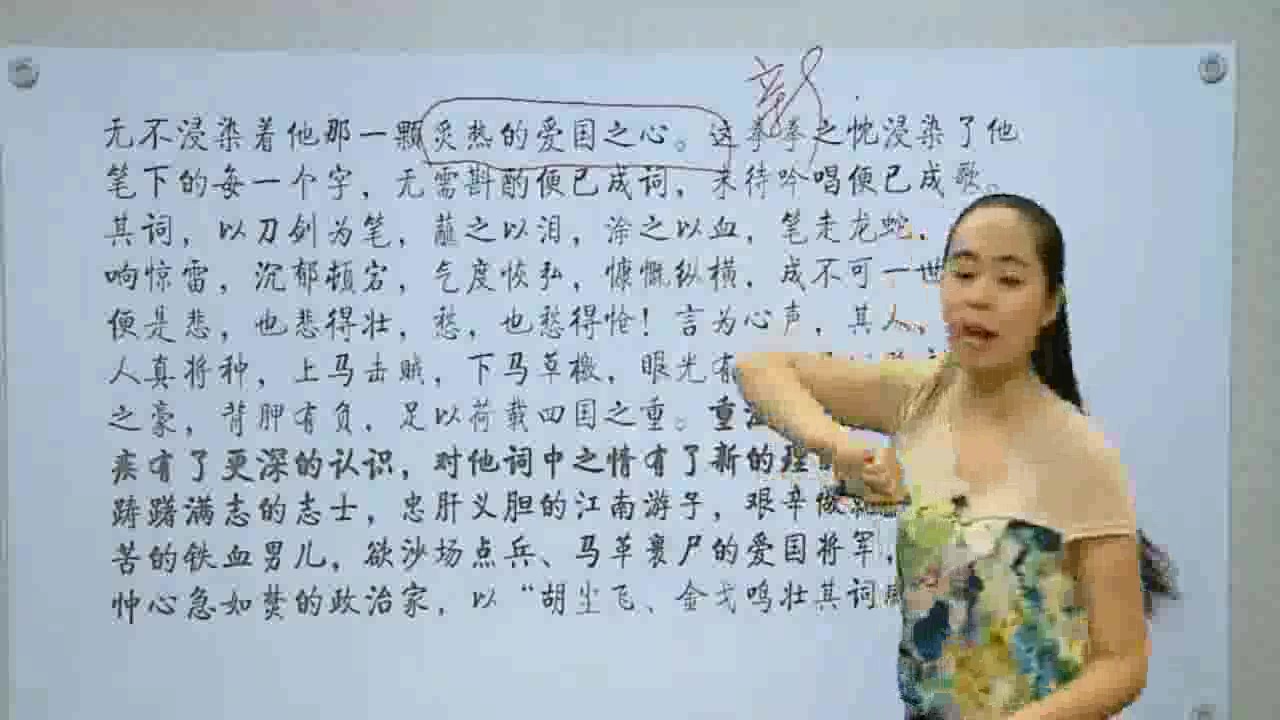 新
无不浸染着他那一颗炙热的爱国之心。这拳拳之忱浸染了他
笔下的每一个字，无需斟酌便已成词，未待吟唱便已成歌。
其词，以刀剑为笔，蘸之以泪，涂之以血，笔走龙蛇，
响惊雷，沉郁顿宕，气度恢弘，慷慨纵横，成不可一世
便是悲，也悲得壮，愁，也愁得怆！言为心声，其人，
人真将种，上马击贼，下马草檄，眼光有
之豪，背胛有负，足以荷载四国之重。重
疾有了更深的认识，对他词中之情有了新的理
踌躇满志的志士，忠肝义胆的江南游子，艰辛做
苦的铁血男儿，欲沙场点兵、马革裹尸的爱国将军，
忡心急如焚的政治家，以“胡尘飞、金戈鸣壮其词